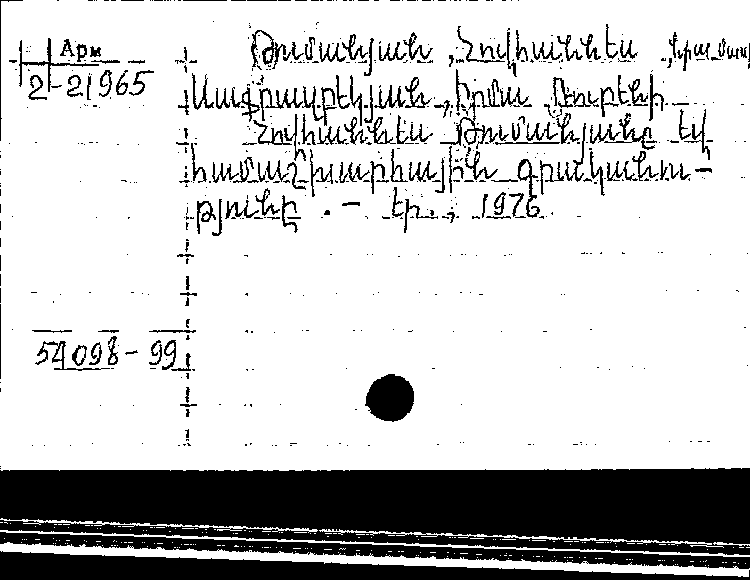 Арм
2-21965
Թումանյան, Հովհաննես
Սաֆրազբեկյան, Իրմա Ռուբենի
Հովհաննես Թումանյանը եվ
համաշխարհային գրականու-
թյունը . - Եր., 1976
54098-99